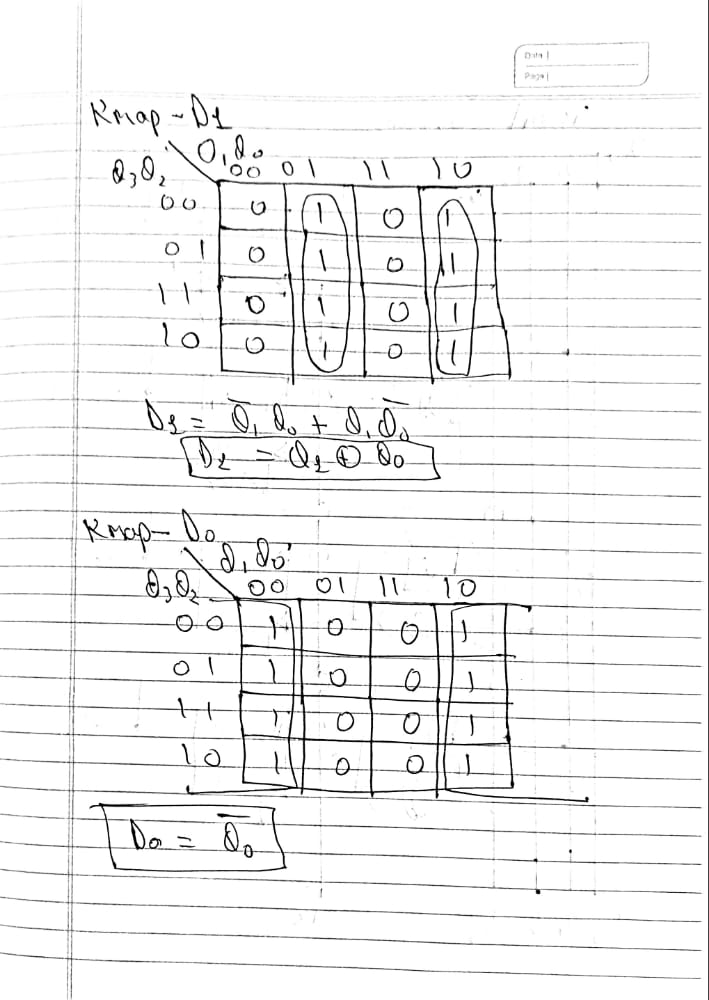 Date |
Page |
Kmap - D1
Q1Q0
Q3Q2 00 01 11 10
00 0 1 0 1
01 0 1 0 1
11 0 1 0 1
10 0 1 0 1
D1 = Q̅1 Q0 + Q1 Q̅0
D1 = Q1 ⊕ Q0
Kmap - D0
Q1Q0
Q3Q2 00 01 11 10
00 1 0 0 1
01 1 0 0 1
11 1 0 0 1
10 1 0 0 1
D0 = Q̅0